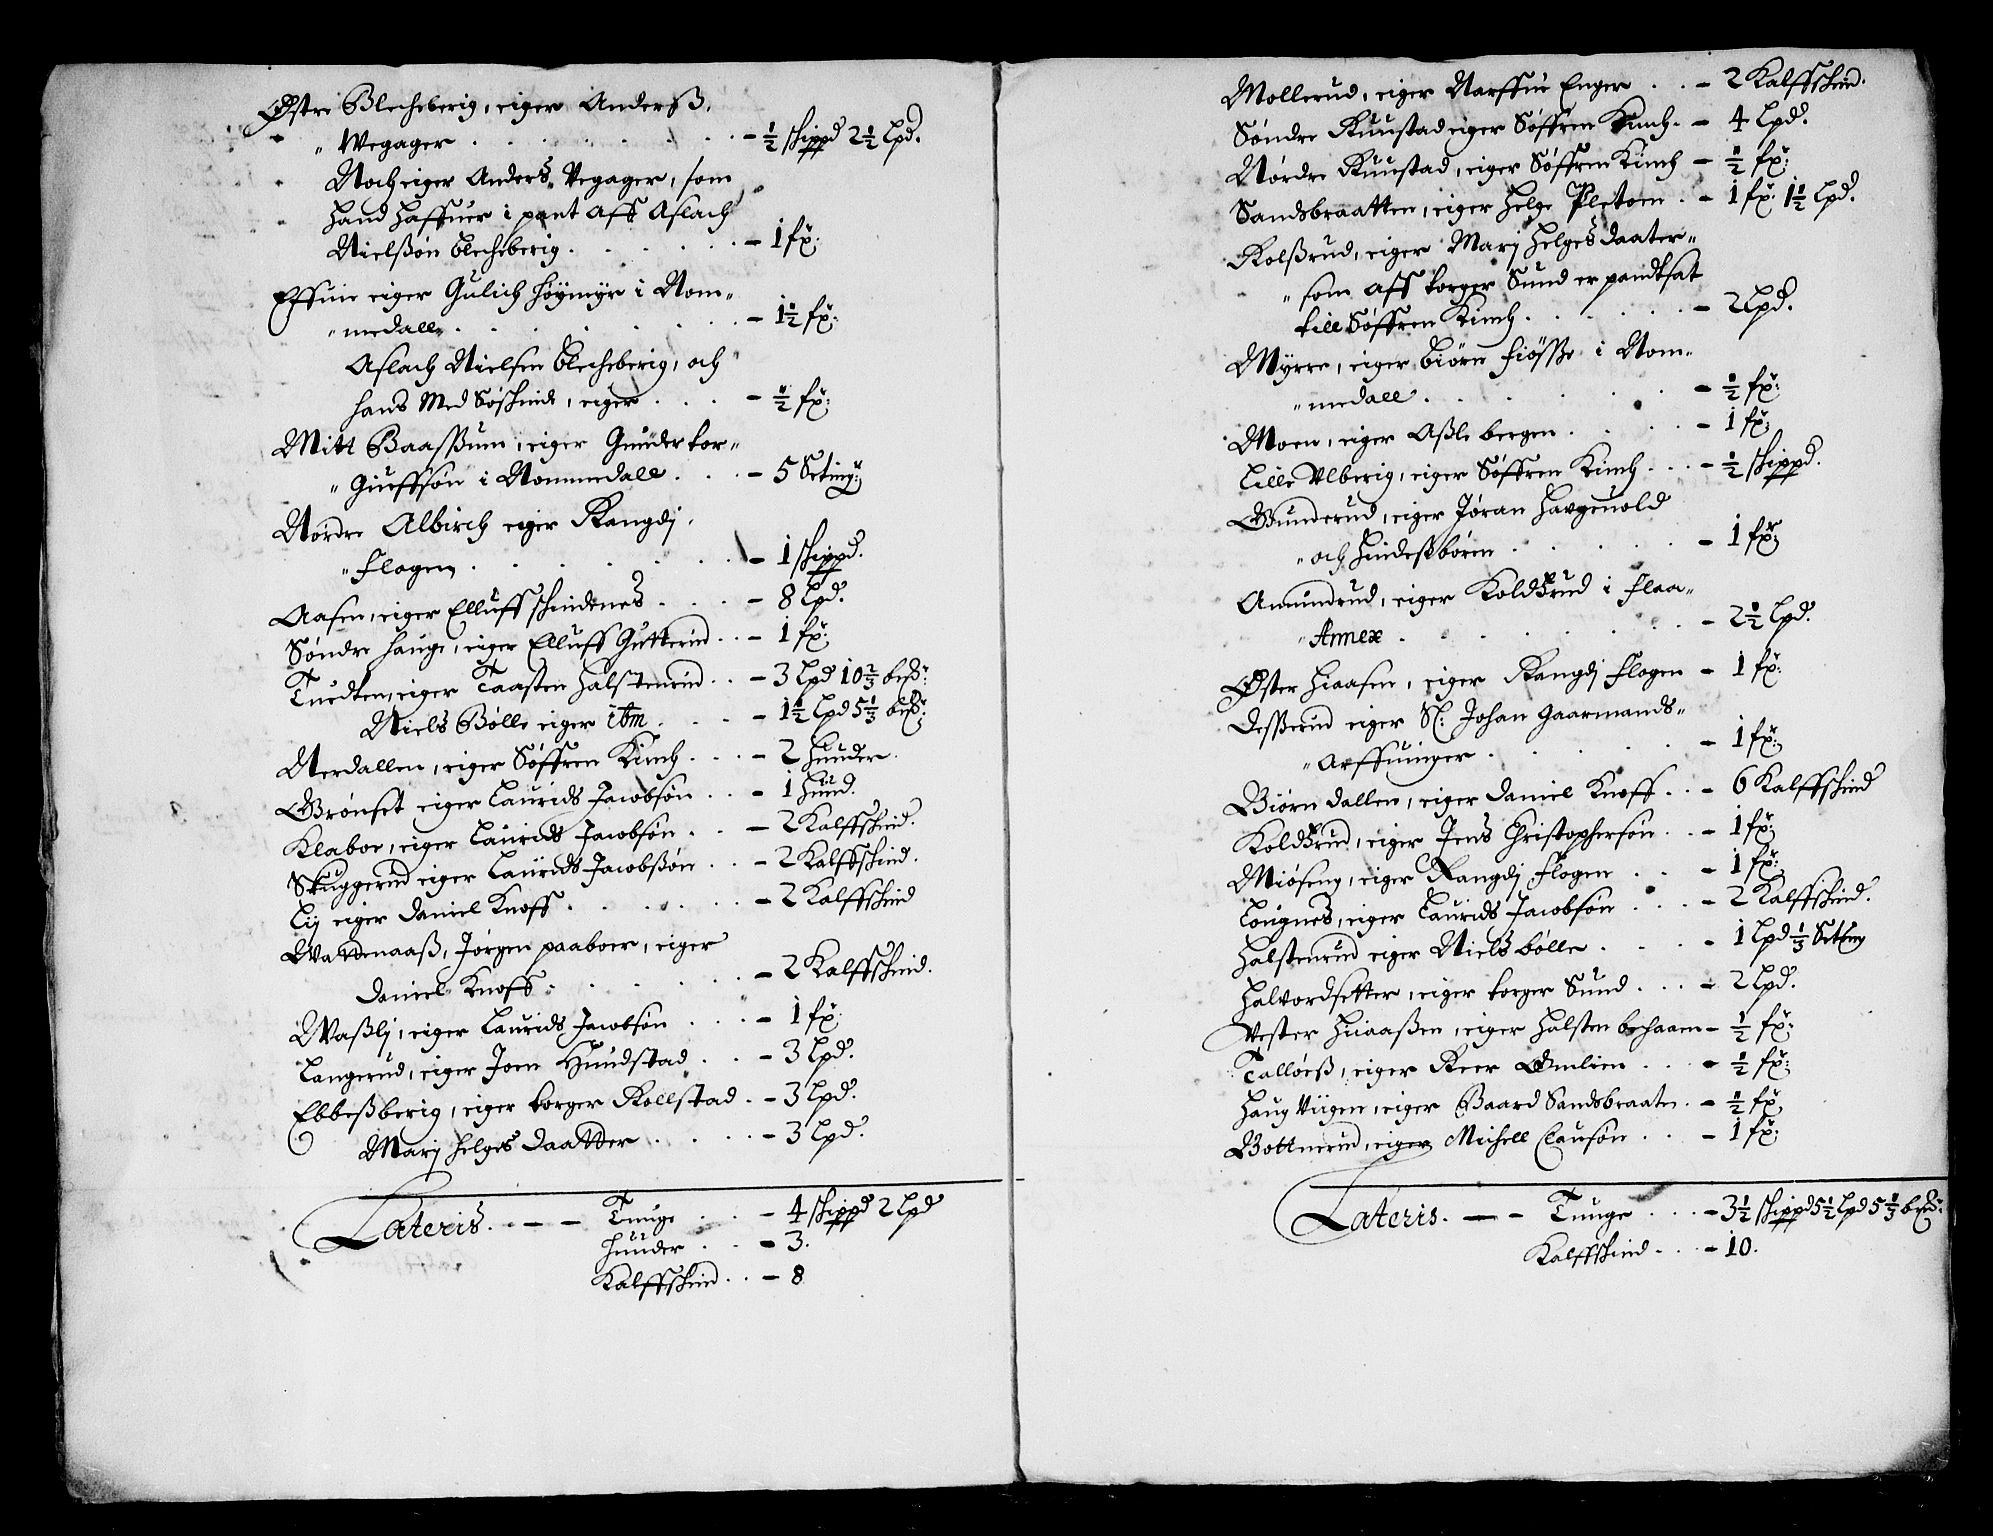 Østre Blecheberig, eiger Anderß.
" Wegager . . . . . . . - ½ skippd 2½ Lpd.
Noch eiger Anders Vegager, som
Hand Haffuer i pant aff Aslach
Nielßøn Blecheberig . . . . . - 1 fx:
Effuie eiger Gulich Høymyr i Nom"
"medall . . . . . . . - 1½ fx:
Aslach Nielsen Blecheberig, och
hans Med Søschinde, eiger . . . - ½ fx:
Mitt Baaßum, eiger Gunder tor"
"Giuffsøn i Nommedall . . . - 5 Seting:
Nordre Albirch eiger Rangdj
"Flagen . . . . . . . - 1 skippd.
Aasen, eiger Elluff schindenes . . . - 8 Lpd.
Søndre Hauge, eiger Elluff Gutterud . . - 1 fx:
Tuedten, eiger Taasten Halstenrud . . - 3 Lpd 10⅔ bsd:
Niels Bølle eiger itm . . . . - 1½ Lpd 5⅓ bsd:
Nerdallen, eiger Søffren Kinch . . . - 2 Huuder.
Grønset eiger Laurids Jacobsøn . . - 1 Huud.
Klaboe, eiger Laurids Jacobsøn . . . - 2 Kalffskind.
Skuggerud eiger Laurids Jacobßøn . . - 2 Kalffskind.
Lij eiger Daniel Knoff . . . . . - 2 Kalffskind
Wardenaaß, Jørgen paaboer, eiger
Daniel Knoff . . . . . . - 2 Kalffskind.
Waßlj, eiger Laurids Jacobsøn . . . - 1 fx:
Langerud, eiger Joen Hundstad . . . - 3 Lpd.
Ebbeßberig, eiger torger Rollstad . - 3 Lpd.
Marj Helges Daatter . . . . - 3 Lpd.
Lateris. - - - Tunge . . . - 4 skippd 2 Lpd
Huuder . . . - 3.
Kalffskind . . - 8
Mollerud, eiger Narffue Enger . . - 2 Kalffskind.
Søndre Ruustad eiger Søffren Kinch. - 4 Lpd.
Nordre Ruustad, eiger Søffren Kinch - ½ fx:
Sandsbraatten, eiger Helge Pletoen . - 1 fx: 1½ Lpd.
Rolßrud, eiger Marj Helges Daater"
"som aff torger Sund er pandtsat
till Søffren Kinch . . . . . - 2 Lpd.
Myrre, eiger Biørn Fiøsße i Nom"
"medall . . . . . . . - ½ fx:
Moen, eiger Aßle bergen . . . . - 1 fx:
Lille Ulberig, eiger Søffren Kinch . . . - ½ skippd.
Gunderud, eiger Jøran Havgeuold
"och Hindeß børen . . . . . - 1 fx:
Amundrud, eiger Koldßrud i Flaa"
"Annex . . . . . . . - 2½ Lpd.
Øster Hiaasen, eiger Rangdj Flagen - 1 fx:
Deßerud eiger Sl: Johan Gaarmands"
"Arffuinger . . . . . . - 1 fx:
Biørn dallen, eiger Daniel Knoff . . - 6 Kalffskind
Koldßrud, eiger Jens Christophersøn . . - 1 fx:
Miøseng, eiger Rangdj Flagen . . . - 1 fx:
Lougnes, eiger Laurids Jacobsøn . . . - 2 Kalffskind.
Halstenrud eiger Niels Bølle . . . . - 1 Lpd ⅓ Seting
Halvordsetter, eiger torger Sund . . . - 2 Lpd.
Vester Hiaaßen, eiger Halsten behaam - ½ fx:
Talløeß, eiger Reer Ømlien . . . - ½ fx:
Haug Viigen, eiger Baard Sandsbraaten . - ½ fx
Bottnerud, eiger Michell Clausøn . . . - 1 fx:
Lateris. - - Tunge . . . - 3½ skippd 5½ Lpd 5⅓ bsd:
Kalffskind . . . - 10.